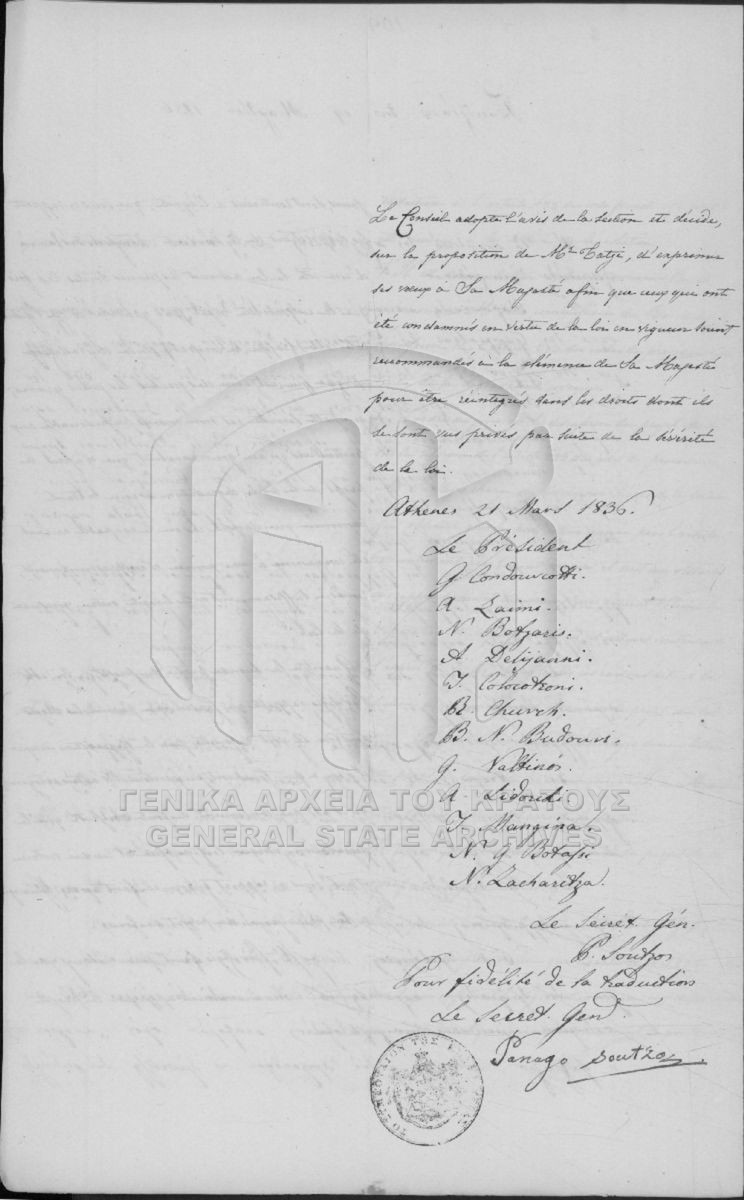 Le Conseil adopte l'avis de la section et décide,
sur la proposition de Mr Tatzi, d'exprimer
ses vœux à Sa Majesté afin que ceux qui ont
été condamnés en vertu de la loi en vigueur soient
recommandés à la clémence de Sa Majesté
pour être réintégrés dans les droits dont ils
se sont vus privés par suite de la sévérité
de la loi.
Athènes 21 Mars 1836.
Le Président
G Condouriotti.
A. Zaimi.
N. Botzaris.
A Delijanni.
T. Colocotroni.
R. Church.
B. N. Budouri.
G. Valtinós.
A Lidoriki
T. Mangina.
N. G Botassi
N. Zacharitza.
Le Secret. Gén.
P. Soutzos
Pour fidélité de la traduction
Le Secret. Gend.
Panago Soutzo
ΓΕΝΙΚΑ ΑΡΧΕΙΑ ΤΟΥ ΚΡΑΤΟΥΣ
GENERAL STATE ARCHIVES